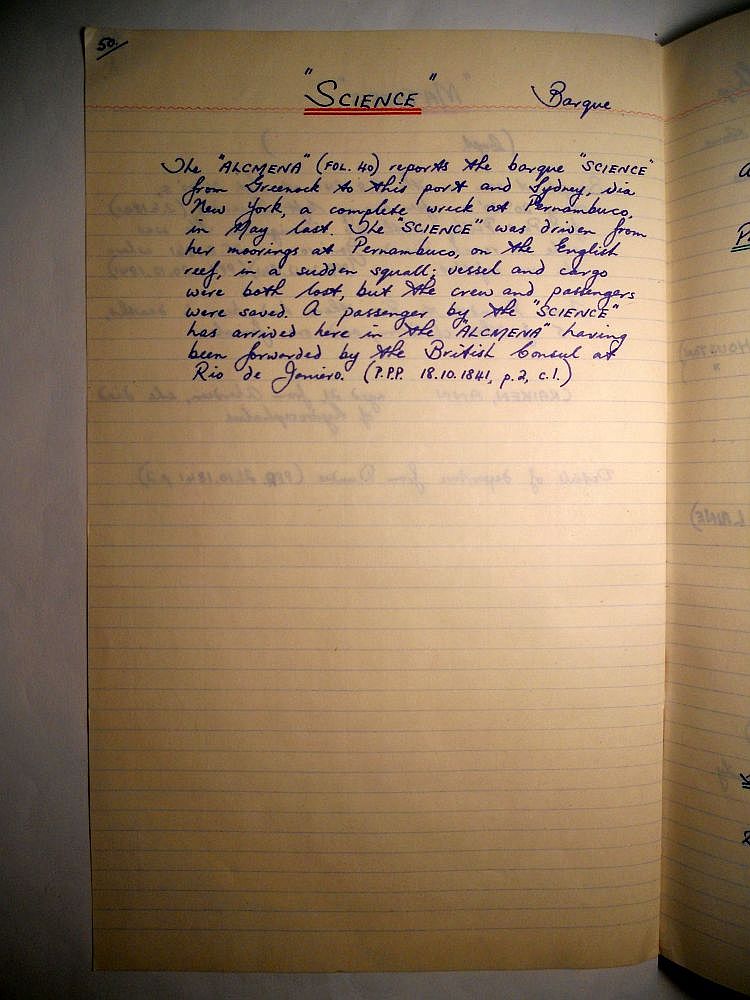 50.
"SCIENCE" Barque
The "ALCMENA" (FOL. 40) reports the barque "SCIENCE"
from Greenock to this port and Sydney, via
New York, a complete wreck at Pernambuco,
in May last. The "SCIENCE" was driven from
her moorings at Pernambuco, on the English
reef, in a sudden squall; vessel and cargo
were both lost, but the crew and passengers
were saved. A passenger by the "SCIENCE"
has arrived here in the "ALCMENA" having
been forwarded by the British Consul at
Rio de Janiero. (P.P.P. 18.10.1841, p.2, c.1.)